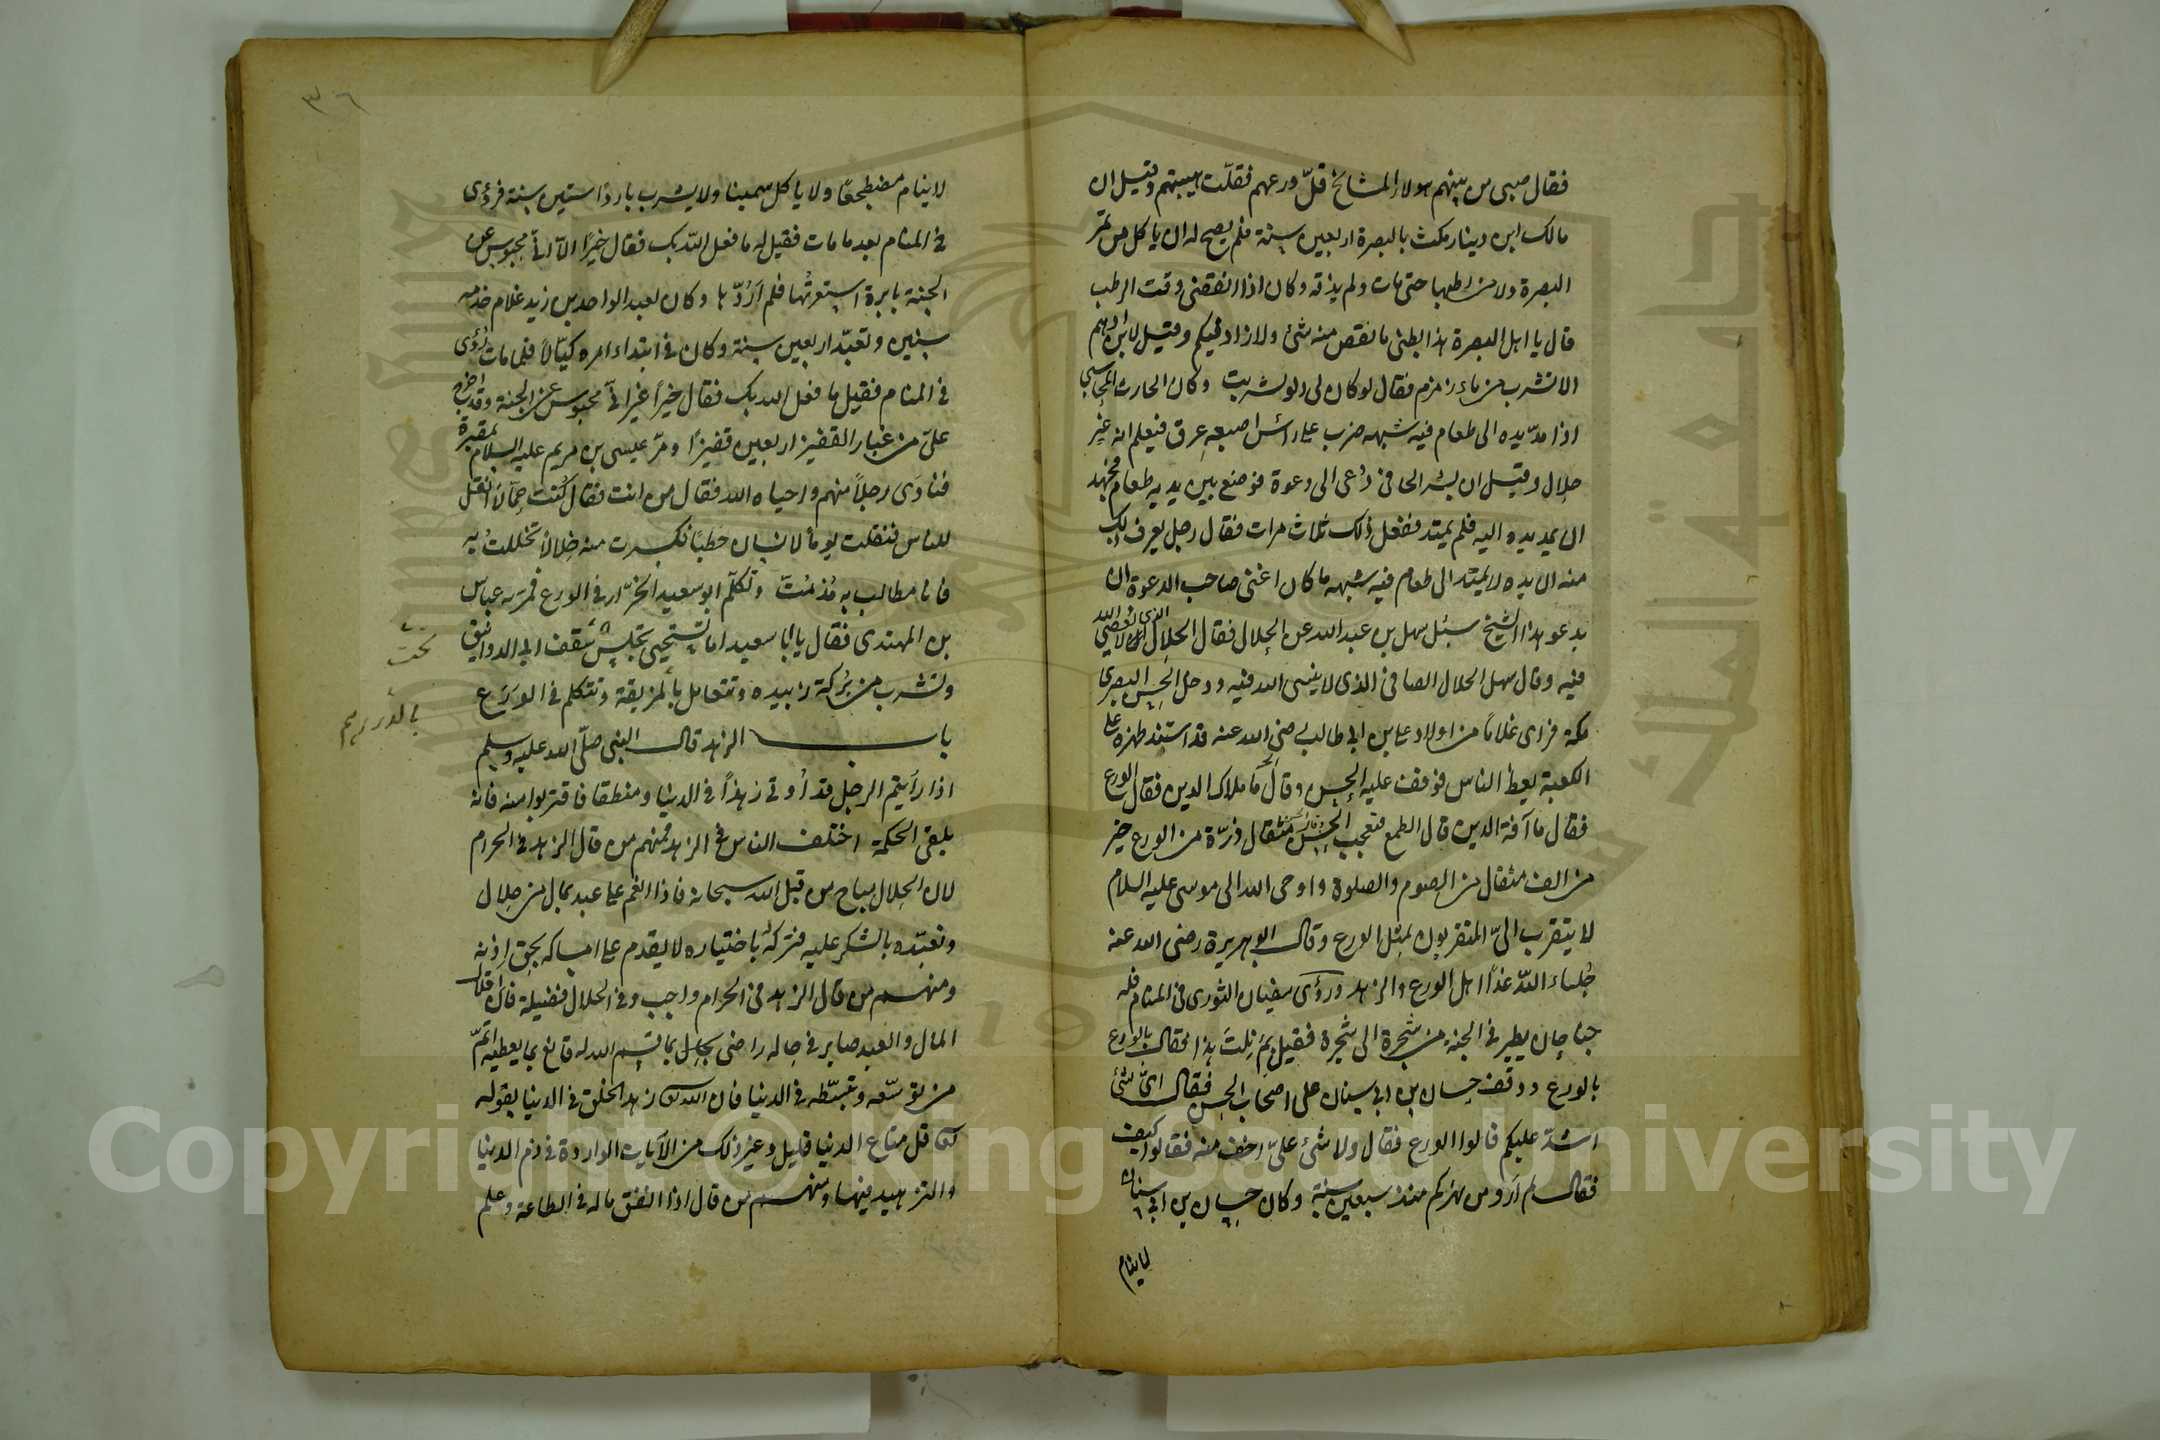 فقال صبى من بينهم هولاء المشائخ قلّ ورعهم فقلّت هيبتهم وقيل ان
مالك ابن دينار مكث بالبصرة اربعين سنة فلم يصح له ان ياكل من تمر
البصرة ولا من رطبها حتى مات ولم يذقه وكان اذا انقضى وقت الرطب
قال يا اهل البصرة هذا بطنى ما نقص منه شئ ولا زاد فيكم وقيل لابراهيم
الا تشرب من ماء زمزم فقال لو كان لى دلو لشربت وكان الحارث المحاسبى
اذا مدّ يده الى طعام فيه شبهه ضرب على رأس اصبعه عرق فيعلم انه غير
حلال وقيل ان بشر الحافى دُعى الى دعوة فوضع بين يديه طعام فجهد
ان يمد يده اليه فلم يمتد ففعل ذلك ثلاث مرات فقال رجل يعرف ذلك
منه ان يده لا يمتد الى طعام فيه شبهه ما كان اغنى صاحب الدعوة ان
يدعو هذا الشيخ سئل سهل بن عبد الله عن الحلال فقال الحلال الذى لا يعصى الله
فيه وقال سهل الحلال الصافى الذى لا ينسى الله فيه ودخل الحسن البصرى
مكة فراى غلامًا من اولاد على بن ابى طالب رضى الله عنه قد اسند ظهره على
الكعبة يعظ الناس فوقف عليه الحسن وقال ما ملاك الدين فقال الورع
فقال ما آفة الدين قال الطمع فتعجب الحسن فقال مثقال ذرّة من الورع خير
من الف مثقال من الصوم والصلوة واوحى الله الى موسى عليه السلام
لا يتقرب الىّ المتقربون بمثل الورع وقال ابو هريرة رضى الله عنه
جُلساء اللّه غدًا اهل الورع والزهد ورؤى سفيان الثورى فى المنام فله
جناحان يطير فى الجنة من شجرة الى شجرة فقيل بِمَ نِلتَ هذا فقال بالورع
بالورع ووقف حسان بن ابى سنان على اصحاب الحسن فقال اىّ شئ
اشدّ عليكم قالوا الورع فقال ولا شئ علىّ اخف منه فقالوا كيف
فقال لم ارو من نهركم منذ سبعين سنة وكان حسان بن ابى سنان
لا ينام
٣٦
لا ينام مضطجعًا ولا ياكل سمينا ولا يشرب باردًا ستين سنة فرؤى
فى المنام بعد ما مات فقيل له ما فعل اللّه بك فقال خيرًا الا انّى محبوس عن
الجنة بابرة استعرتُها فلم اَرُدّها وكان لعبد الواحد بن زيد غلام خدمه
سنين وتعبّد اربعين سنة وكان فى ابتداء امره كيّالاً فلما مات رُؤى
فى المنام فقيل ما فعل الله بك فقال خيرًا غير انّى محبوس عن الجنة وقد اخرج
علىّ من غبار القفيز اربعين قفيزًا ومرّ عيسى بن مريم عليه السلام بمقبرة
فنادى رجلاً منهم واحياه الله فقال من انت فقال كُنت حمّالاً انقل
للناس فنقلت يومًا لانسان حطبًا فكسرت منه خِلالاً تخللتُ به
فانا مطالب به مُذ مُتّ وتكلّم ابو سعيد الخرّاز فى الورع فمرّ به عباس
بن المهتدى فقال يا ابا سعيد اما تستحيى تجلس سقف ابى الدوانيق
تحت
وتشرب من بُركة زبيده وتتعامل بالمزيفة وتتكلم فى الورع
بالدراهم
باب الزهد قال النبى صلّى الله عليه وسلم
اذا رأيتم الرجل قد اُوتى زهدًا فى الدنيا ومنطقا فاقتربوا منه فانه
يلقى الحكمة اختلف الناس فى الزهد فمنهم من قال الزهد فى الحرام
لان الحلال مباح من قبل اللّه سبحانه فاذا انعم على عبد بمال من حلال
وتعبّده بالشكر عليه فتركُه باختياره لا يقدم على امساكه بحق اذنه
ومنهم من قال الزهد فى الحرام واجب وفى الحلال فضيلة فان اقلال
المال والعبد صابر فى حاله راضى بما قسم الله له قانع بما يعطيه اتمّ
من توسّعه وتبسّطه فى الدنيا فان الله زهد الخلق فى الدنيا بقوله
قل متاع الدنيا قليل وغير ذلك من الآيات الواردة فى ذم الدنيا
والتزهيد فيها ومنهم من قال اذا انفق ماله فى الطاعة وعلم
Copyright © King Saud University
جامعة الملك سعود